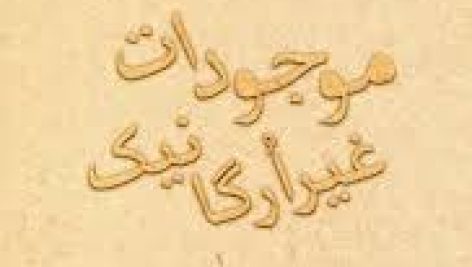 موجودات
غیرأرگانیک